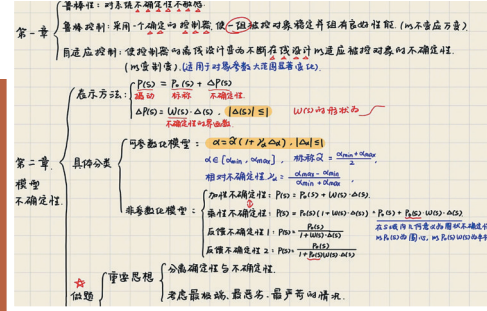 鲁棒性：对系统不确定性不敏感.
第一章
鲁棒控制：采用一个确定的控制器，使一组被控对象稳定并且有良好性能.（以不变应万变）
自适应控制：使控制器的离线设计变为不断在线设计以适应被控对象的不确定性.
（以变制变）.（适用于对象参数大范围显著变化）.
表示方法：
P(s) = P₀(s) + ΔP(s)
摄动 标称 不确定性.
ΔP(s) = W(s)·Δ(s)， |Δ(s)| ≤ 1 W(s)的形状为
不确定性的界函数.
第二章
模型
不确定性.
具体分类
可参数化模型： α = α̂(1+γαΔα)，|Δα| ≤ 1
α∈[αmin，αmax]，标称α̂ = (αmin+αmax)/2.
相对不确定性 γα = (αmax-αmin)/(αmin+αmax).
非参数化模型：
加性不确定性：P(s) = P₀(s) + W(s)·Δ(s).
乘性不确定性：P(s) = P₀(s)(1+W(s)·Δ(s)) = P₀(s) + P₀(s)·W(s)·Δ(s)
反馈不确定性1：P(s) = P₀(s)/(1+W(s)·Δ(s))
反馈不确定性2：P(s) = P₀(s)/(1+P₀(s)W(s)·Δ(s))
做题
重要思想
分离确定性与不确定性.
考虑最极端、最恶劣、最严苛的情况.